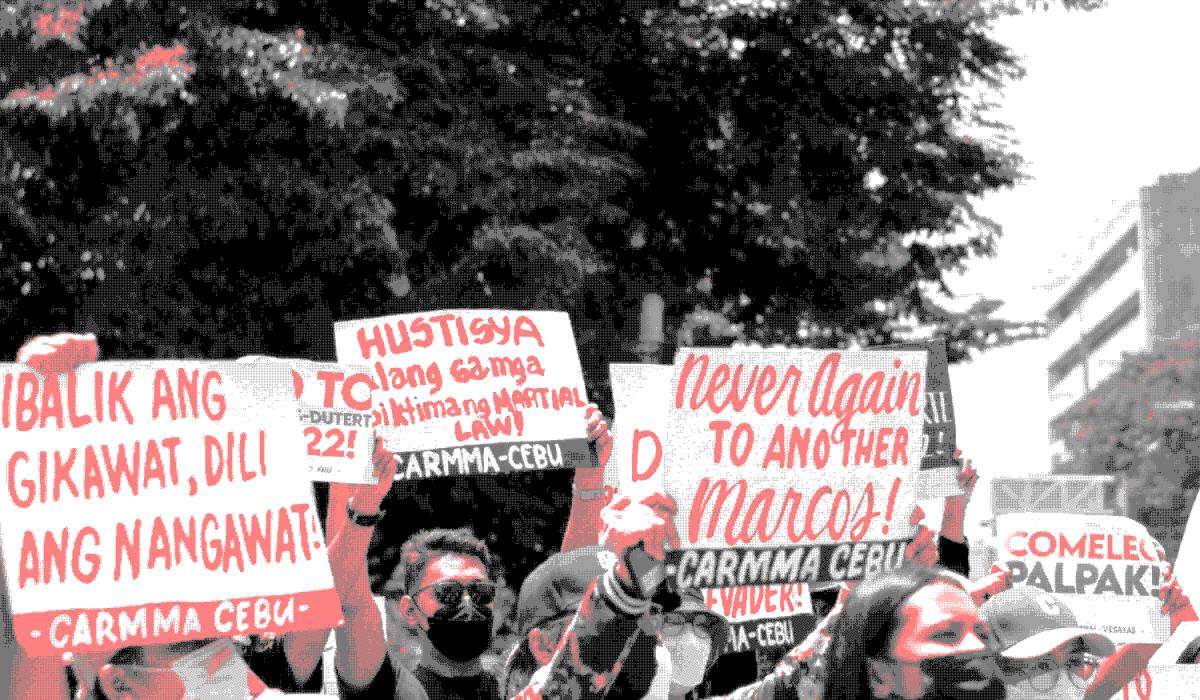 IBALIK ANG
GIKAWAT, DILI
ANG NANGAWAT!
- CARMMA CEBU -
TO
-DUTERT
22!
HUSTISYA
alang sa mga
biktima ng MARTIAL
LAW!
CARMMA-CEBU
D
Never Again
TO ANOTHER
Marcos!
-CARMMA CEBU
EVADER!
MA-CEBU
COMELEC
PALPAK!